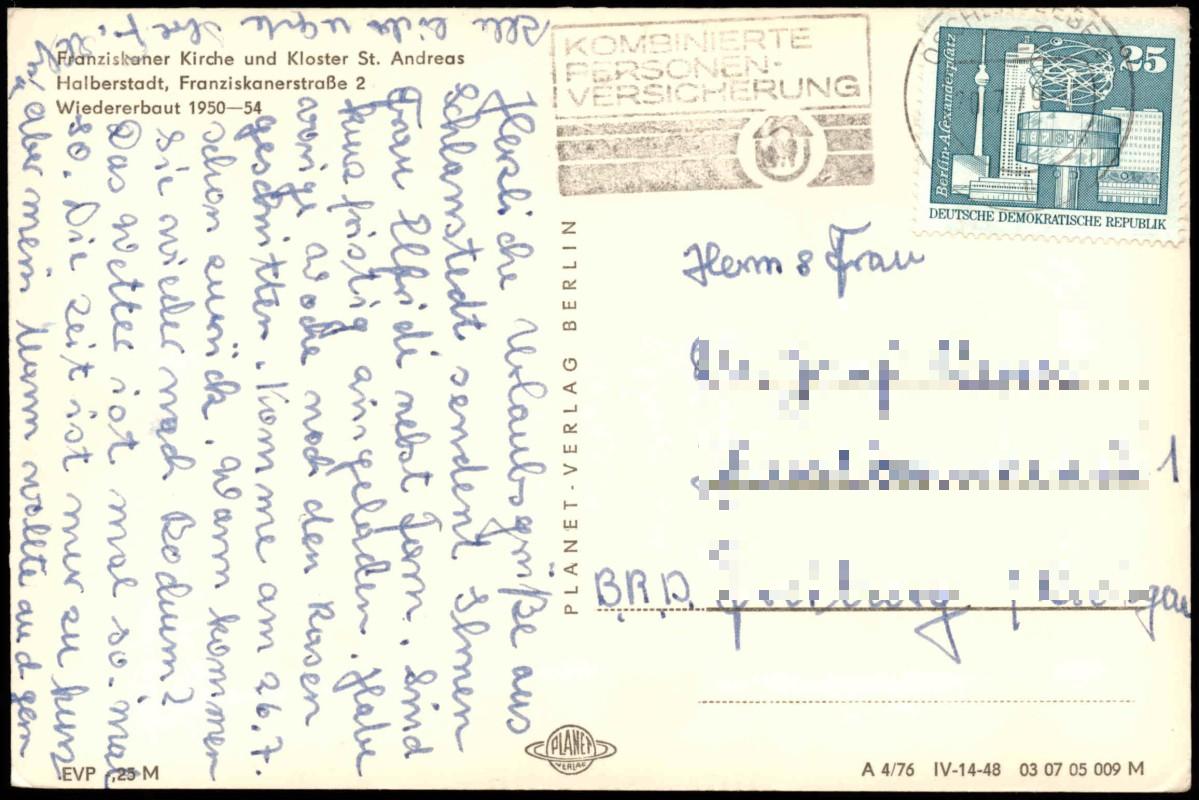 Franziskaner Kirche und Kloster St. Andreas
Halberstadt, Franziskanerstraße 2
Wiedererbaut 1950—54
KOMBINIERTE
PERSONEN-
VERSICHERUNG
25
Berlin-Alexanderplatz
DEUTSCHE DEMOKRATISCHE REPUBLIK
Herzliche Urlaubsgrüße aus
Schlanstedt sendent Ihnen
Frau Elfride nebst Fam. Sind
kurz fristig eingeladen. Habe
vorige Woche noch den Rasen
geschnitten. Komme am 26.7.
schon zurück. Wann kommen
Sie wieder nach Bodum?
Das Wetter ist mal so. mal
so. Die Zeit ist nur zu kurz
aber mein Mann wollte auch gern
PLANET-VERLAG BERLIN
Herrn & Frau
1
BRD.
PLANET
VERLAG
EVP -,25 M
A 4/76 IV-14-48 03 07 05 009 M